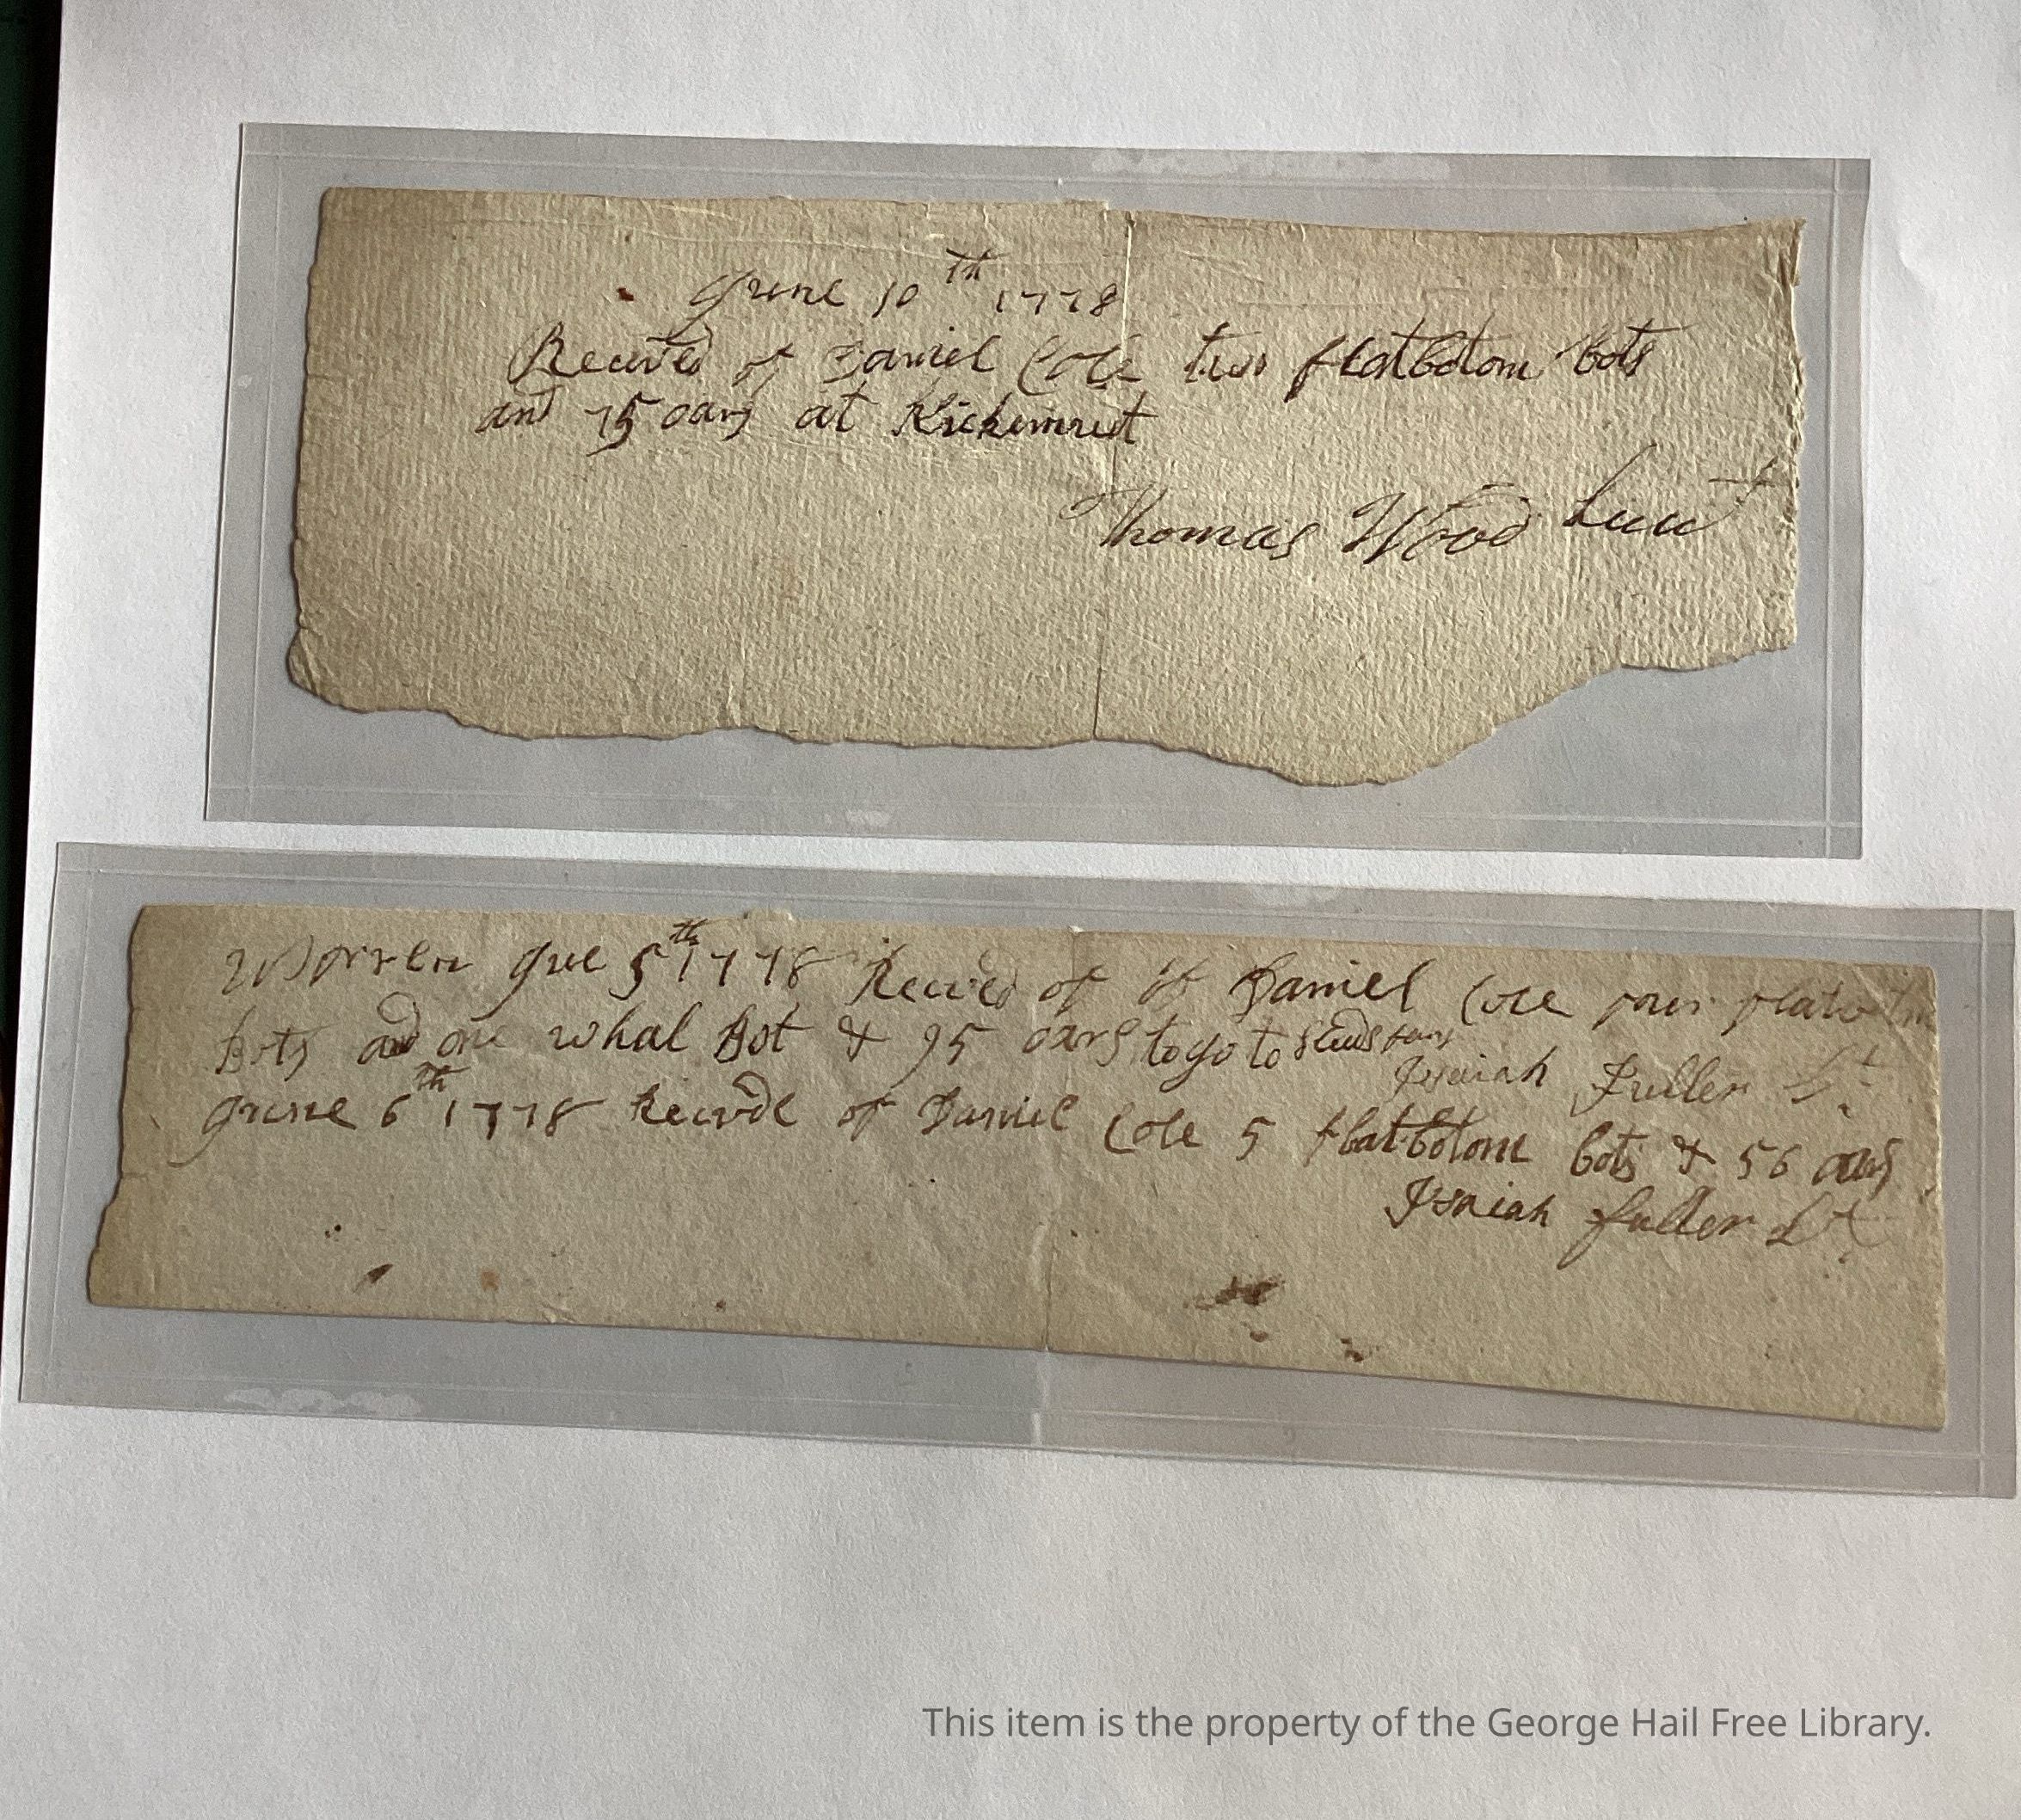 June 10th 1778
Receved of Daniel Cole two flatbotom bots
and 15 oars at Kickemuet
Thomas Wood Lieut
Warren June 5th 1778 Receved of Daniel Cole four flatbotm
Bots and one whal Bot & 95 oars to go to
Isaiah Fuller Lt
June 6th 1778 Recevde of Daniel Cole 5 flatbotom bots & 56 oars
Isaiah fuller Lt
This item is the property of the George Hail Free Library.